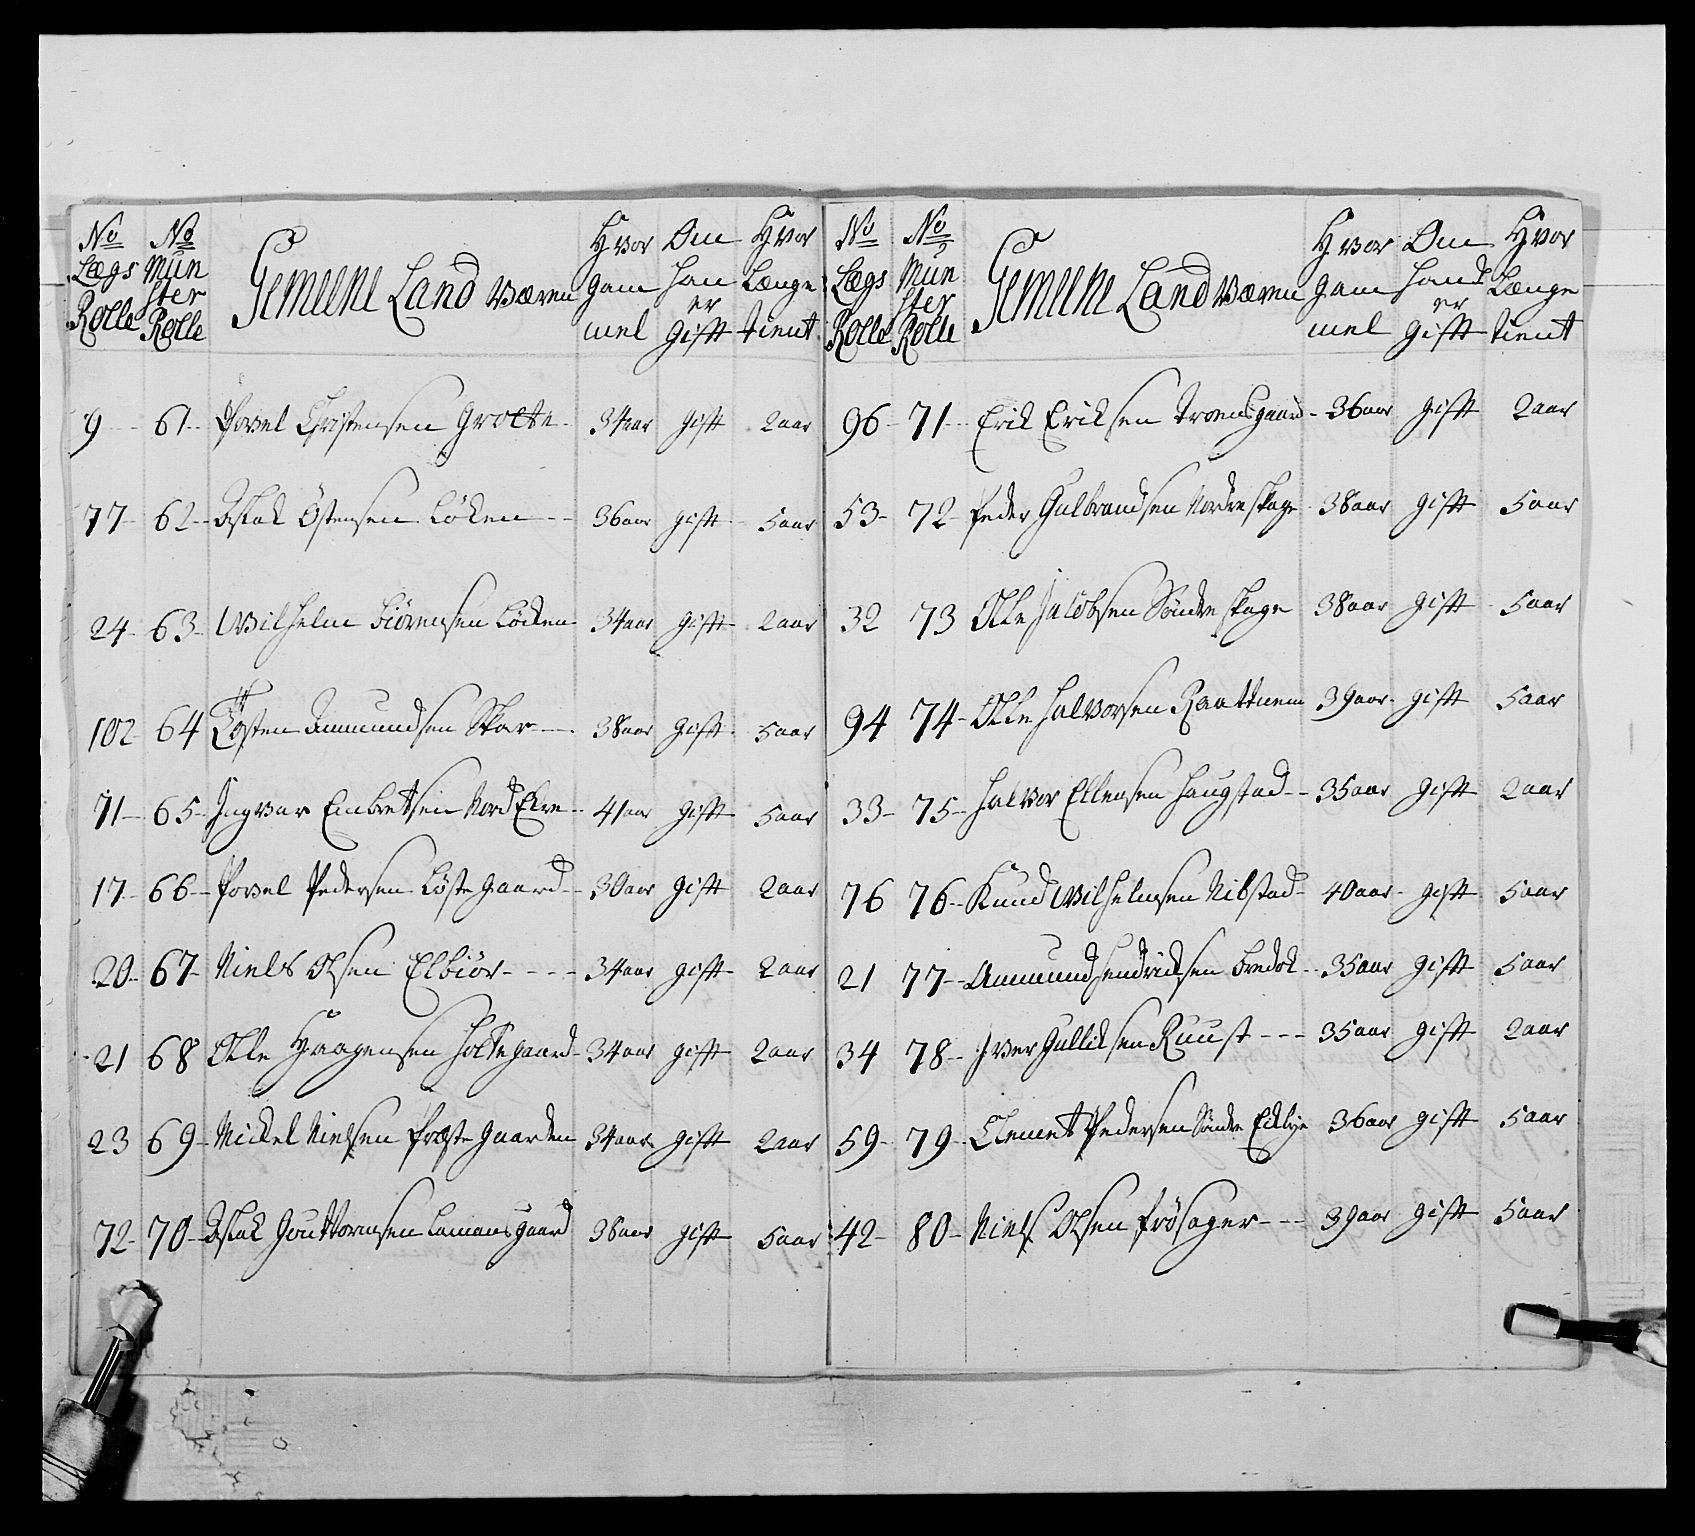 No Lægs Rolle | No Mün ster Rolle | Gemeene Land Væren | Hvor gam mel | Om han er Gift | Hvor Længe tient
9 61 Povel Christensen Grotte 34aar gift 2aar
77 62 Aslak Östensen Löken 36aar gift 5aar
24 63 Wilhelm Biörensen Löcken 34aar gift 2aar
102 64 Tösten Ammundsen Skar 38aar gift 5aar
71 65 Ingvar Embretsen Nord Elve 41aar gift 5aar
17 66 Povel Pedersen Löstegaard 30aar gift 2aar
20 67 Niels Olsen Elbiör 34aar gift 2aar
21 68 Olle Haagensen Holtegaard 34aar gift 2aar
23 69 Mickel Nielsen Præstegaarden 34aar gift 2aar
72 70 Aslak Gouttormsen Lamansgaard 38aar gift 5aar
No Lægs Rolle | No Mün ster Rolle | Gemeene Land Væren | Hvor gam mel | Om hand er Gift | Hvor Længe tient
96 71 Erick Ericksen Troensgaard 36aar gift 2aar
53 72 Peder Gulbrandsen Nordre Skage 38aar gift 5aar
32 73 Olle Jacobsen Söndre Skage 38aar gift 5aar
94 74 Olle Halvorsen Raattnem 39aar gift 5aar
33 75 Halvor Ellensen Haugstad 35aar gift 2aar
76 76 Knud Wilhelmsen Nibstad 40aar gift 5aar
21 77 Ammund Hendricksen 35aar gift 5aar
34 78 Iver Gullicksen Ruust 35aar gift 2aar
59 79 Clemet Pedersen Söndre 36aar gift 5aar
42 80 Niels Olsen Frösager 39aar gift 5aar